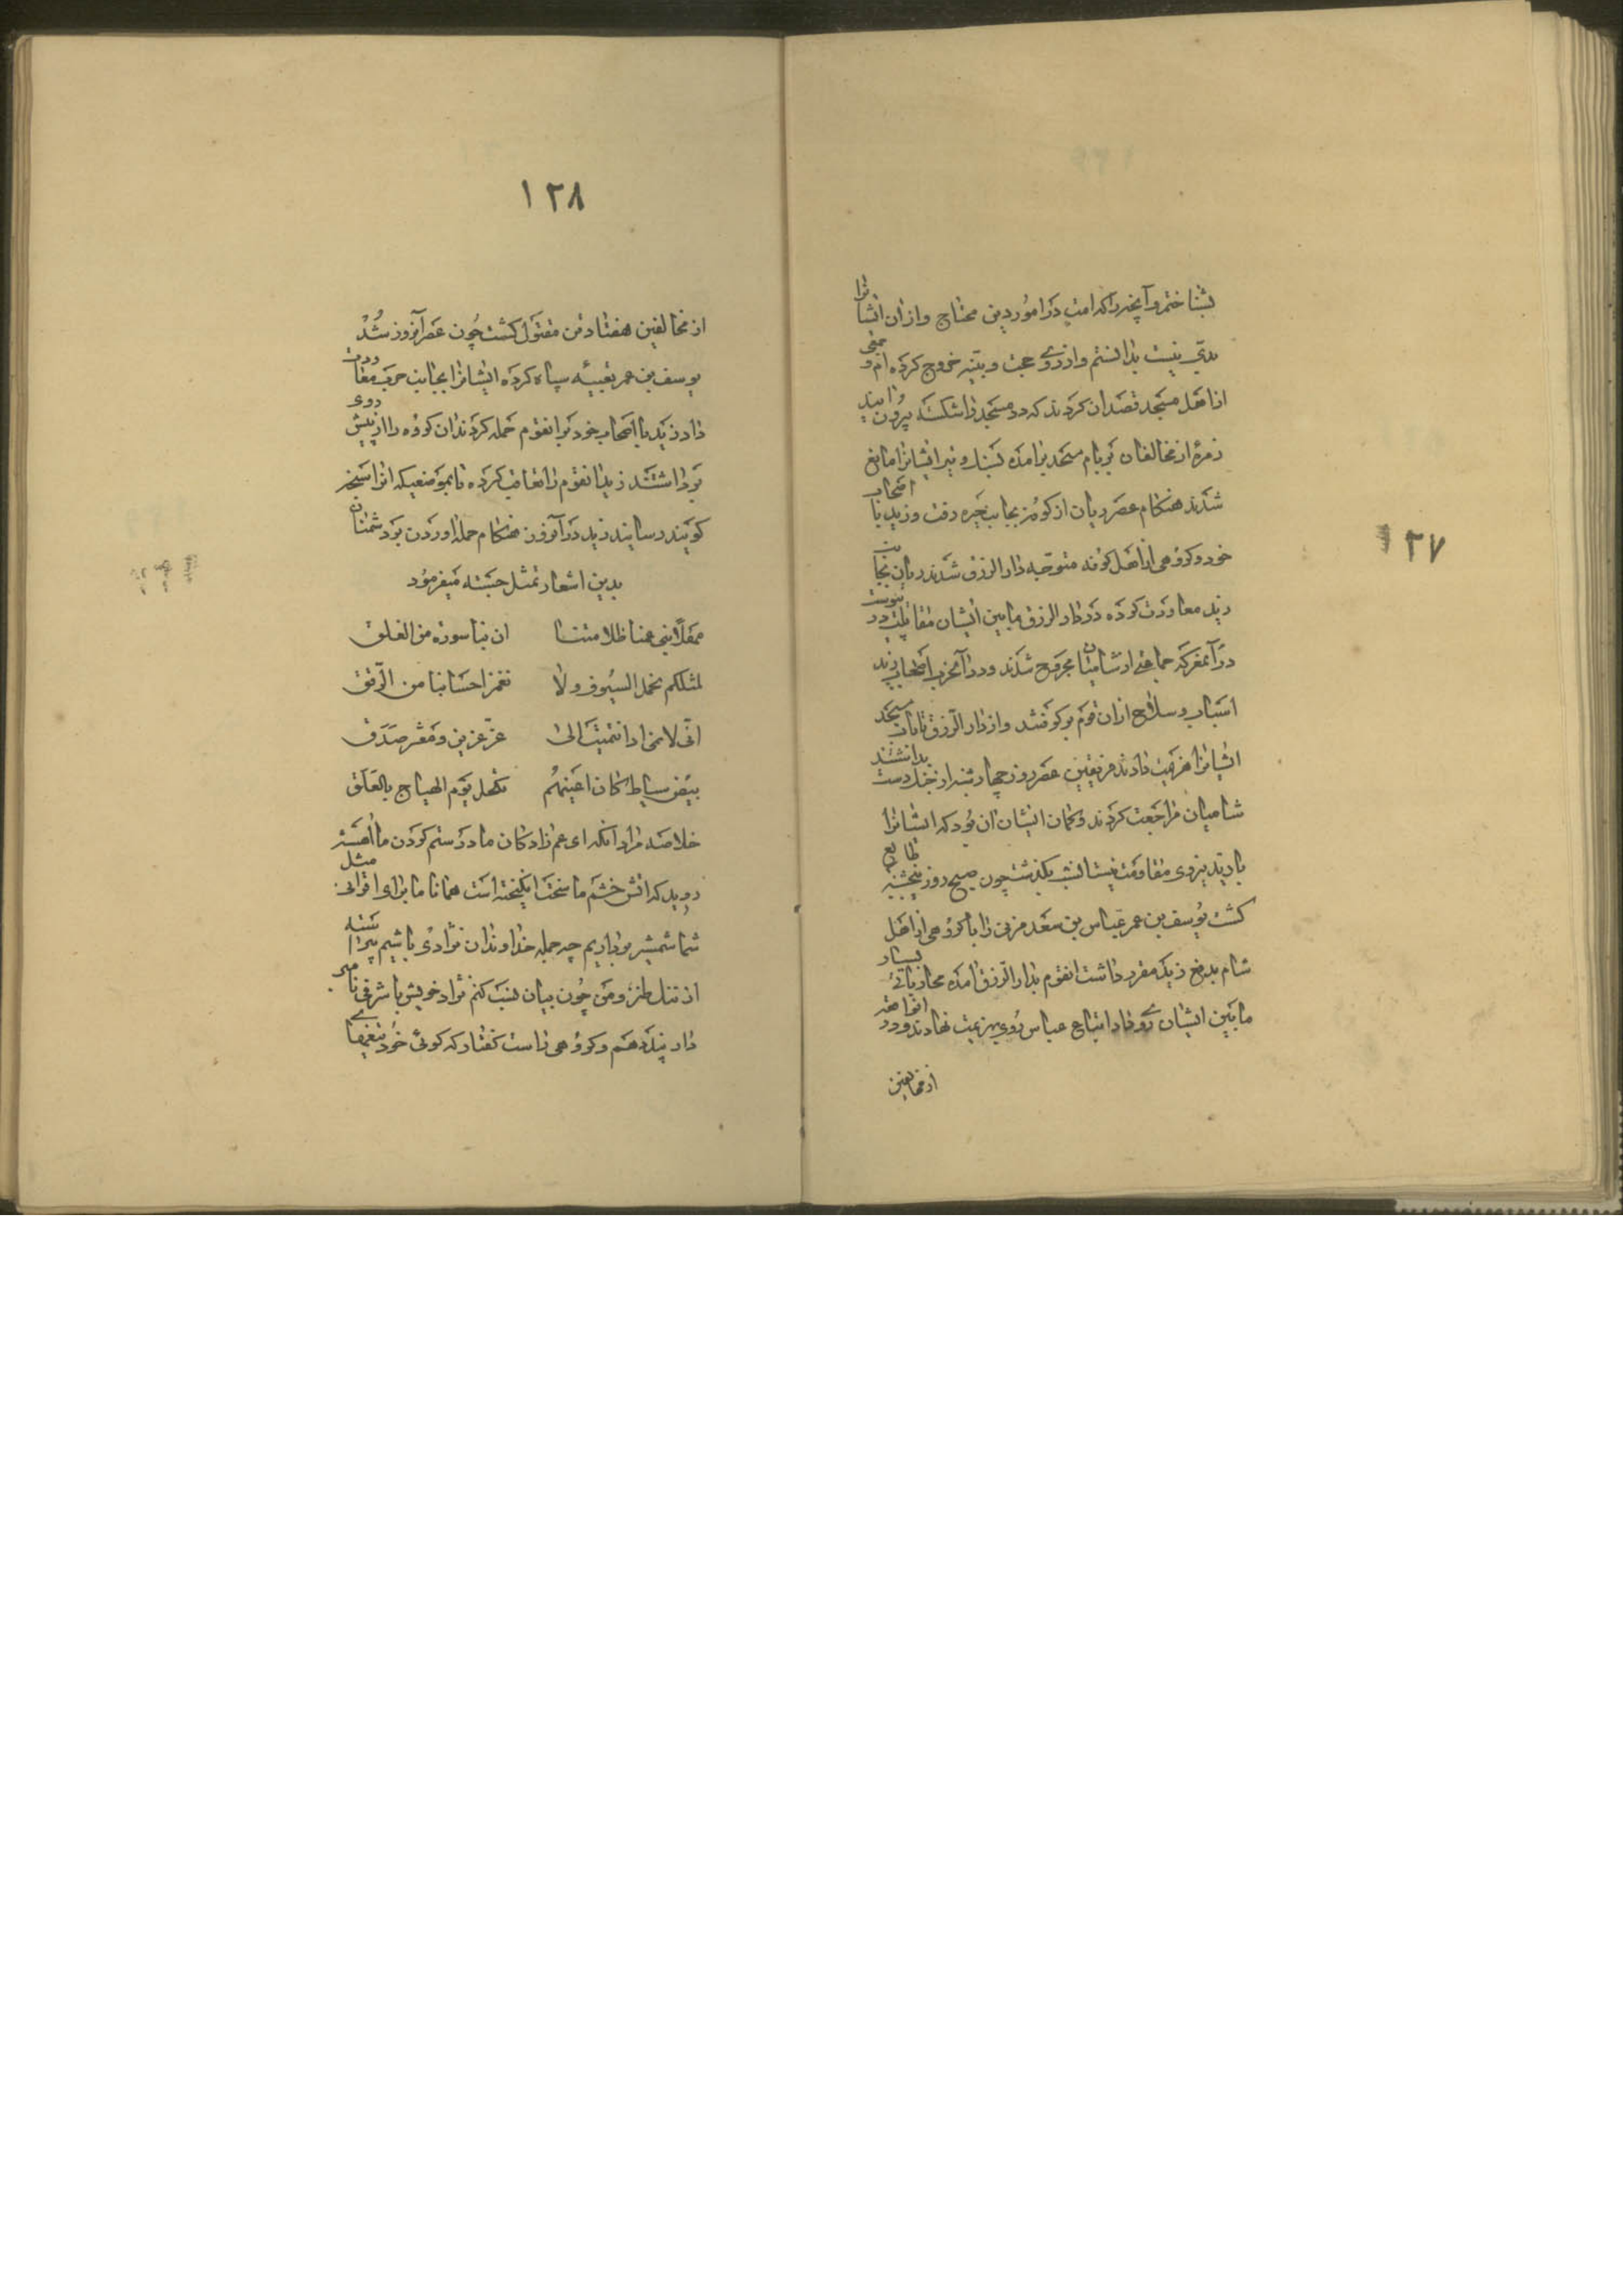 بشناختم و آنچه را که امت در امور دین محتاج و از ان ایشانرا
بدی نیست بدانستم و از روی حجت و بینه خروج کرده ام و جمعی
از اهل مسجد قصد ان کردند که در مسجد را شکسته بیرون آیند
زمرهٔ از مخالفان بر بام مسجد برامده بسنك و تیر ایشانرا مانع
شدند هنکام عصر ریان از کوفه بجانب حیره رفت و زید با اصحاب
خود و کروهی از اهل کوفه متوجه دار الرزق شدند ریان بجانب
زید معاودت کرده در دار الرزق مابین ایشان مقاتلت رو
در آنمعرکه جماعتی از شامیان مجروح شدند و در آنحرب اصحاب زید
اسباب و سلاح ازان قوم برکرفتند و از دار الرزق تا باب مسجد
ایشانرا هزیمت دادند فریقین عصر روز چهارشنبه از جنك دست بداشتند
شامیان مراجعت کردند و کمان ایشان ان بود که ایشانرا
با زید نیروی مقاومت نیست انشب بکذشت چون صبح روز پنجشنبه طالع
کشت یوسف بن عمر عباس بن سعد مزنی را با کروهی از اهل
شام بدفع زید مقرر داشت انقوم بدار الرزق امده محاربات بسیار
مابین ایشان روی داد اتباع عباس روی بهزیمت نهادند و در انواقعه
از مخالفین
۲۷
۱۲۸
از مخالفین هفتاد تن مقتول کشت چون عصر آنروز شد
یوسف بن عمر تعبیهٔ سپاه کرده ایشانرا بجانب حرب معاودت
داد زید با اصحاب خود بر انقوم حمله کردند ان کروه را از پیش روی
برداشتند زید انقوم را تعاقب کرده تا بموضعیکه انرا سنجر
کویند رسانید زید در آنروز هنکام حمله اوردن بر دشمنان
بدین اشعار تمثل جسته میفرمود
مهلا بنی عمنا ظلامتنا ان بنا سورة من الغلق
لمثلکم نحمل السیوف ولا نغمز احسابنا من الرقق
انی لانمی اذا انتمیت الی عز عزیز و معشر صدق
بیض سباط کان اعینهم تکحل یوم الهیاج بالعلق
خلاصه مراد آنکه ای عم زادکان ما در ستم کردن ما اهسته
روید که اتش خشم ما سخت انکیخته است همانا ما برای اقرانی مثل
شما شمشیر برداریم چه جمله خداوندان نژادی باشیم
از تنك طنز و من چون بیان نسب کنم نژاد خویش با شرفی
دار پیوند دهم و کروهی راست کفتار که کوئی خود